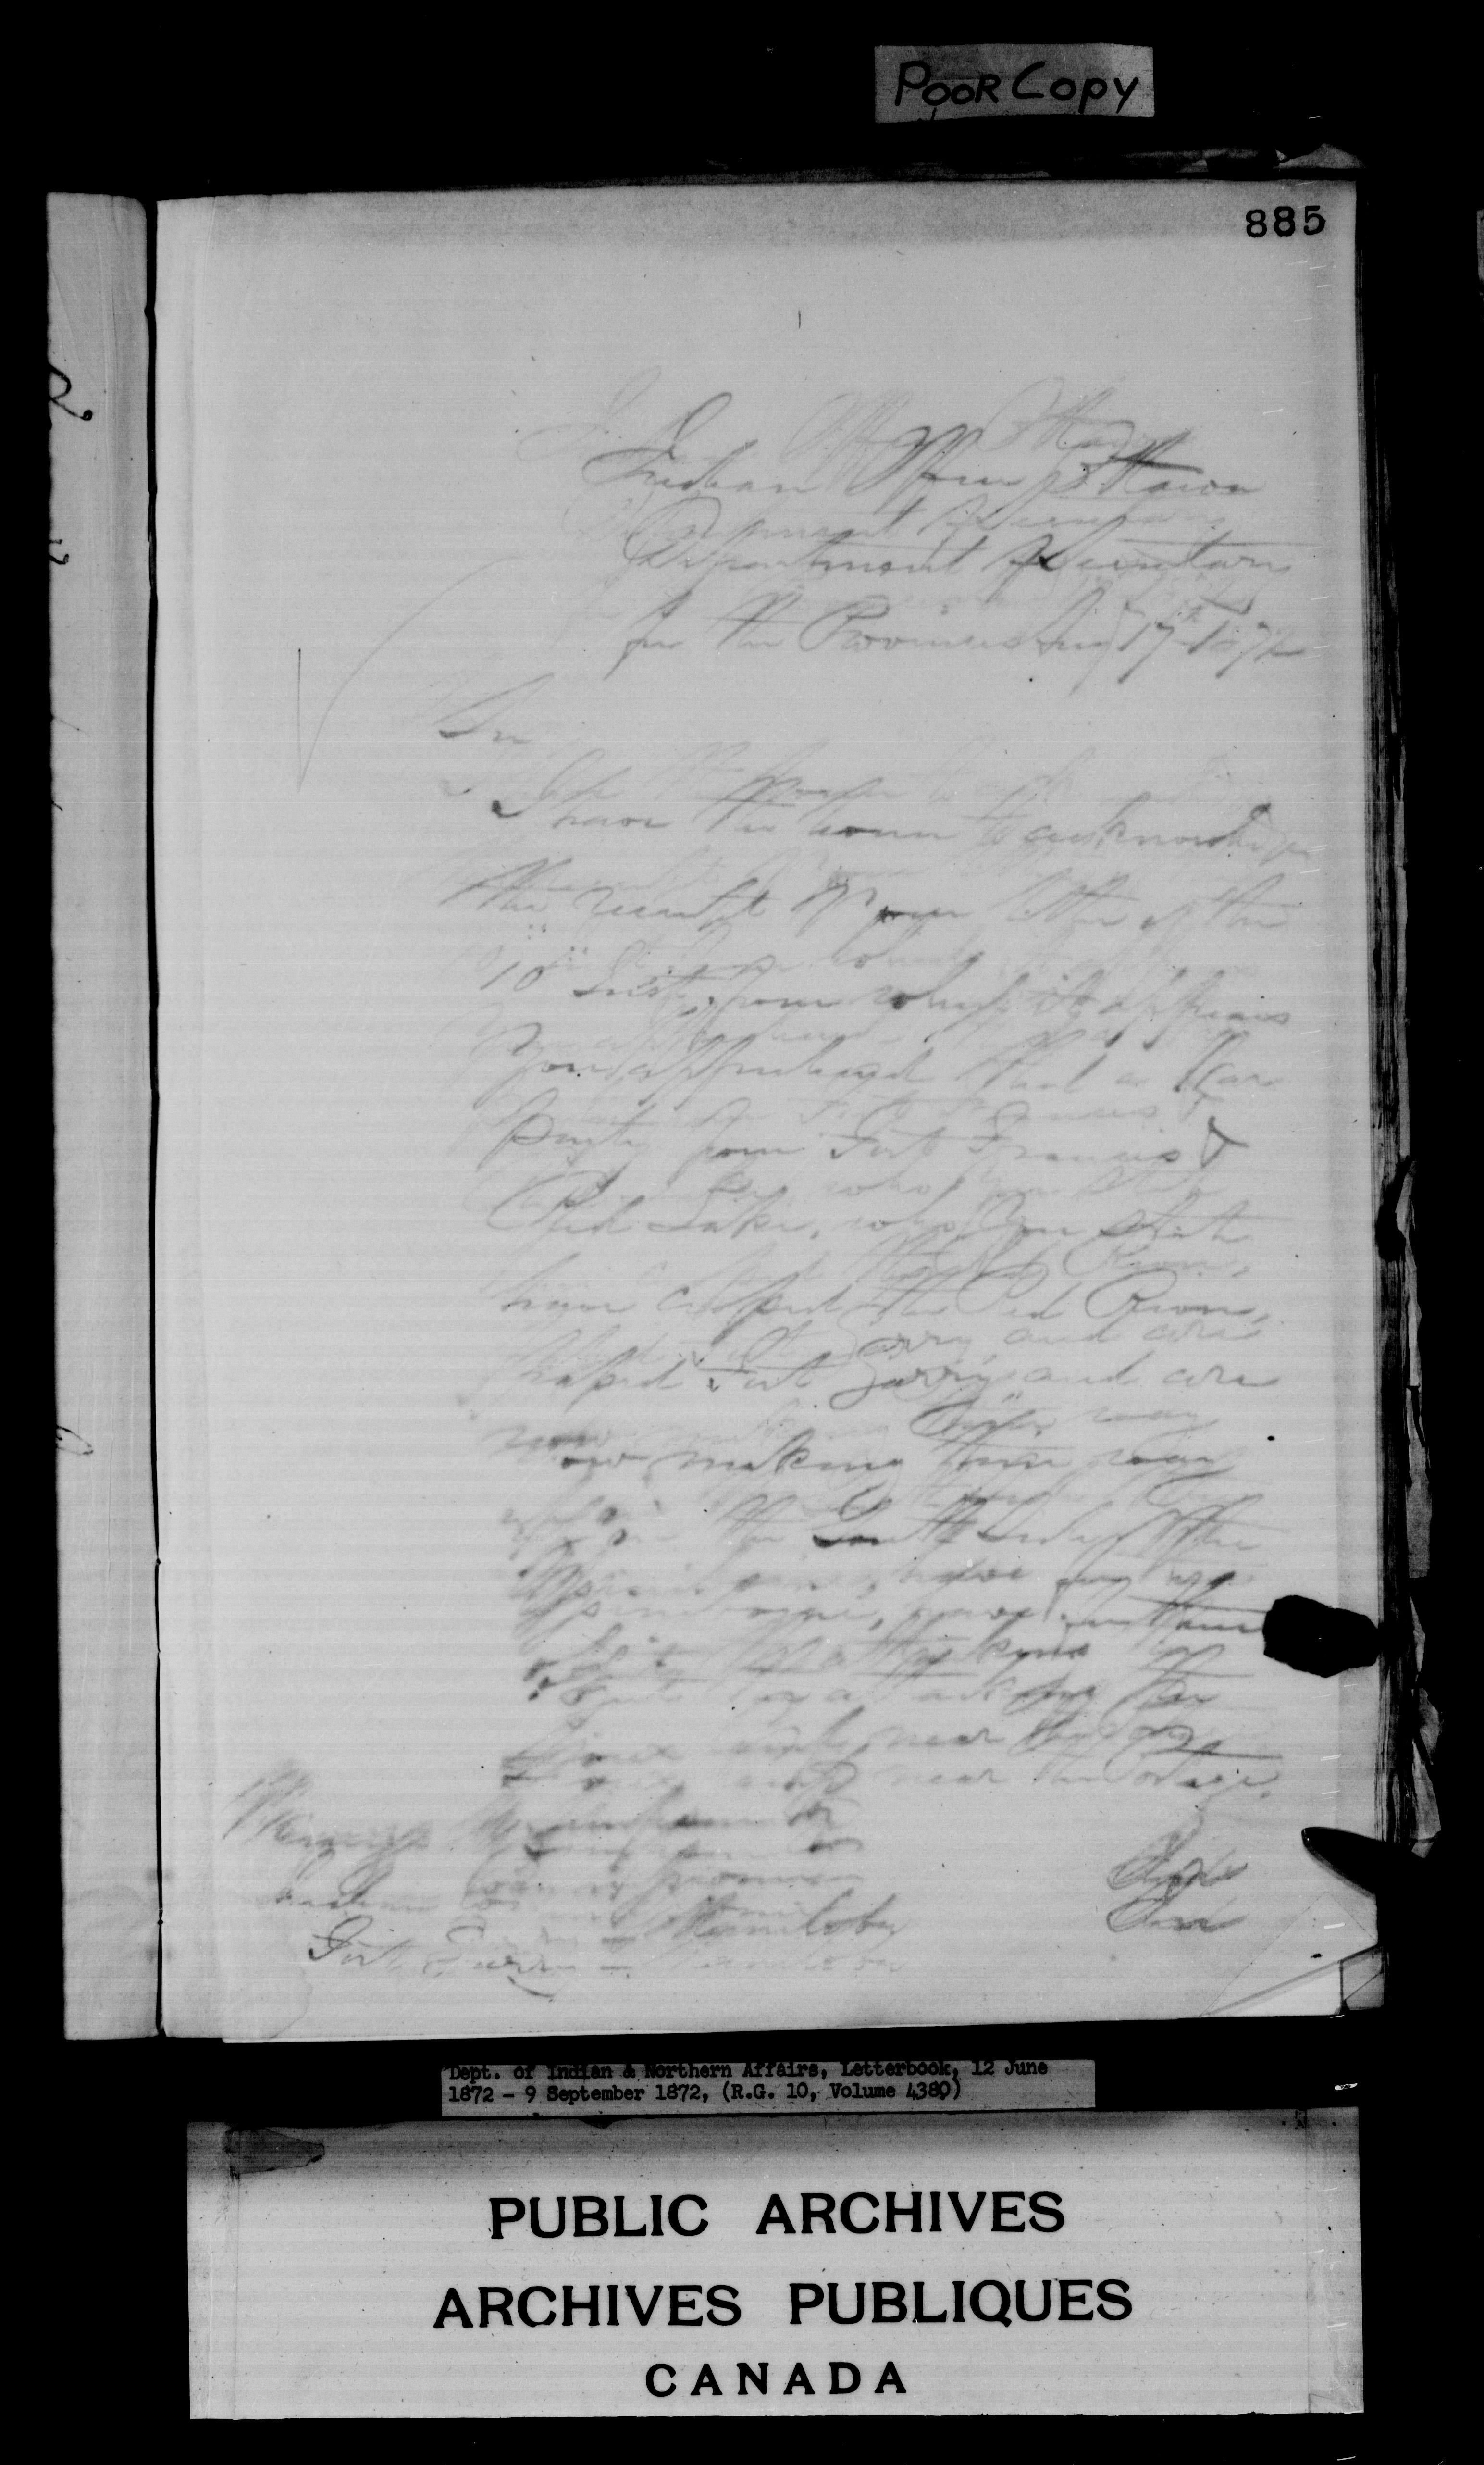 POOR COPY
885
Indian Office Ottawa
Department Secretary
for the Provinces Aug 17th 1872
Sir
I have the honor to acknowledge
the receipt of your letter of the
10" Inst. from which it appears
you apprehend that a War
party from Fort Francis &
Red Lake, who you state
have crossed the Red River,
passed Fort Garry, and are
now making their way
up on the South Side of the
Assiniboine, have for their
object the attacking the
Sioux camp near the Portage.
Indian Commissioner
Fort Garry - Manitoba
Dept. of Indian & Northern Affairs, Letterbook, 12 June
1872 - 9 September 1872, (R.G. 10, Volume 4380)
PUBLIC ARCHIVES
ARCHIVES PUBLIQUES
CANADA